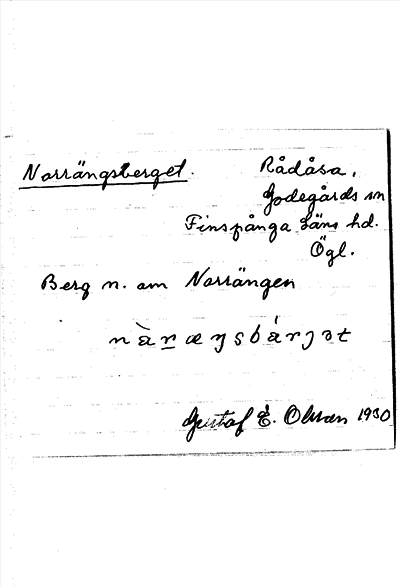 Norrängsberget. Rådåsa,
Godegårds sn
Finspånga Läns hd.
Ögl.
Berg n. om Norrängen
Gustaf E. Olsson 1930